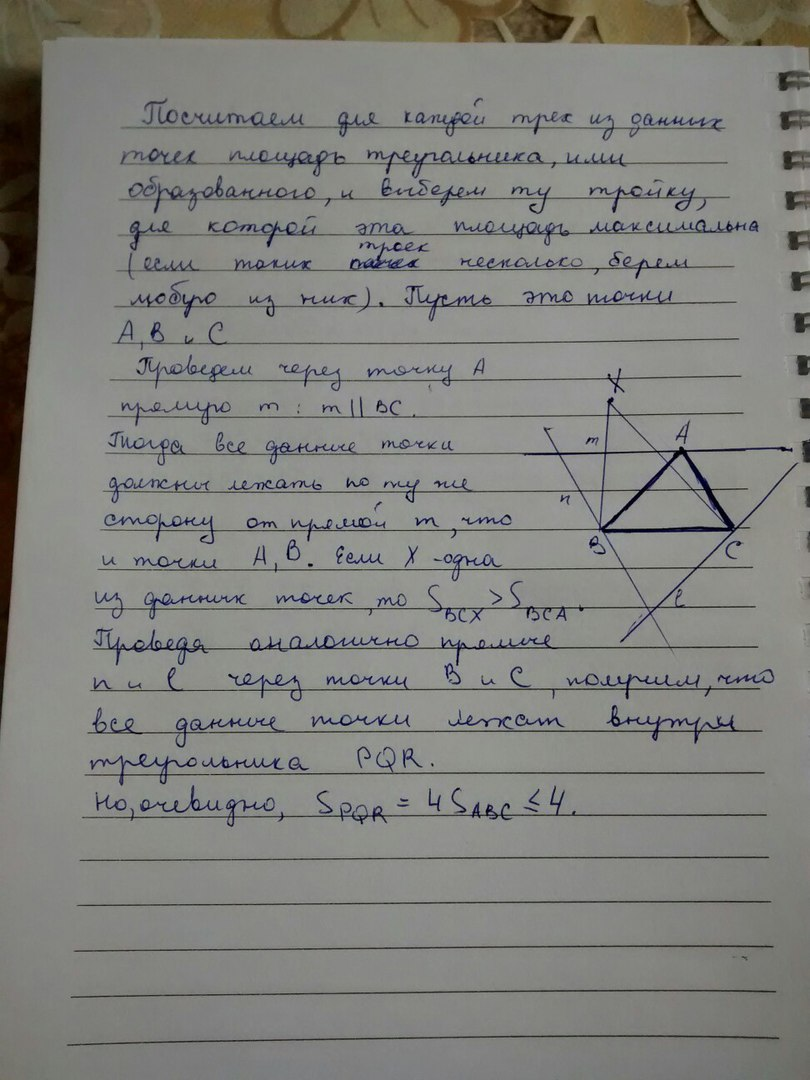 Посчитаем для каждой трех из данных
точек площадь треугольника, ими
образованного, и выберем ту тройку,
для которой эта площадь максимальна
(если таких троек несколько, берем
любую из них). Пусть это точки
A, B и C
Проведем через точку A
прямую m : m || BC.
Тогда все данные точки
должны лежать по ту же
сторону от прямой m, что
и точки A, B. Если X - одна
из данных точек, то S_BCX > S_BCA.
Проведя аналогично прямые
n и l через точки B и C, получим, что
все данные точки лежат внутри
треугольника PQR.
Но, очевидно, S_PQR = 4 S_ABC ≤ 4.
X
A
m
n
B
C
l